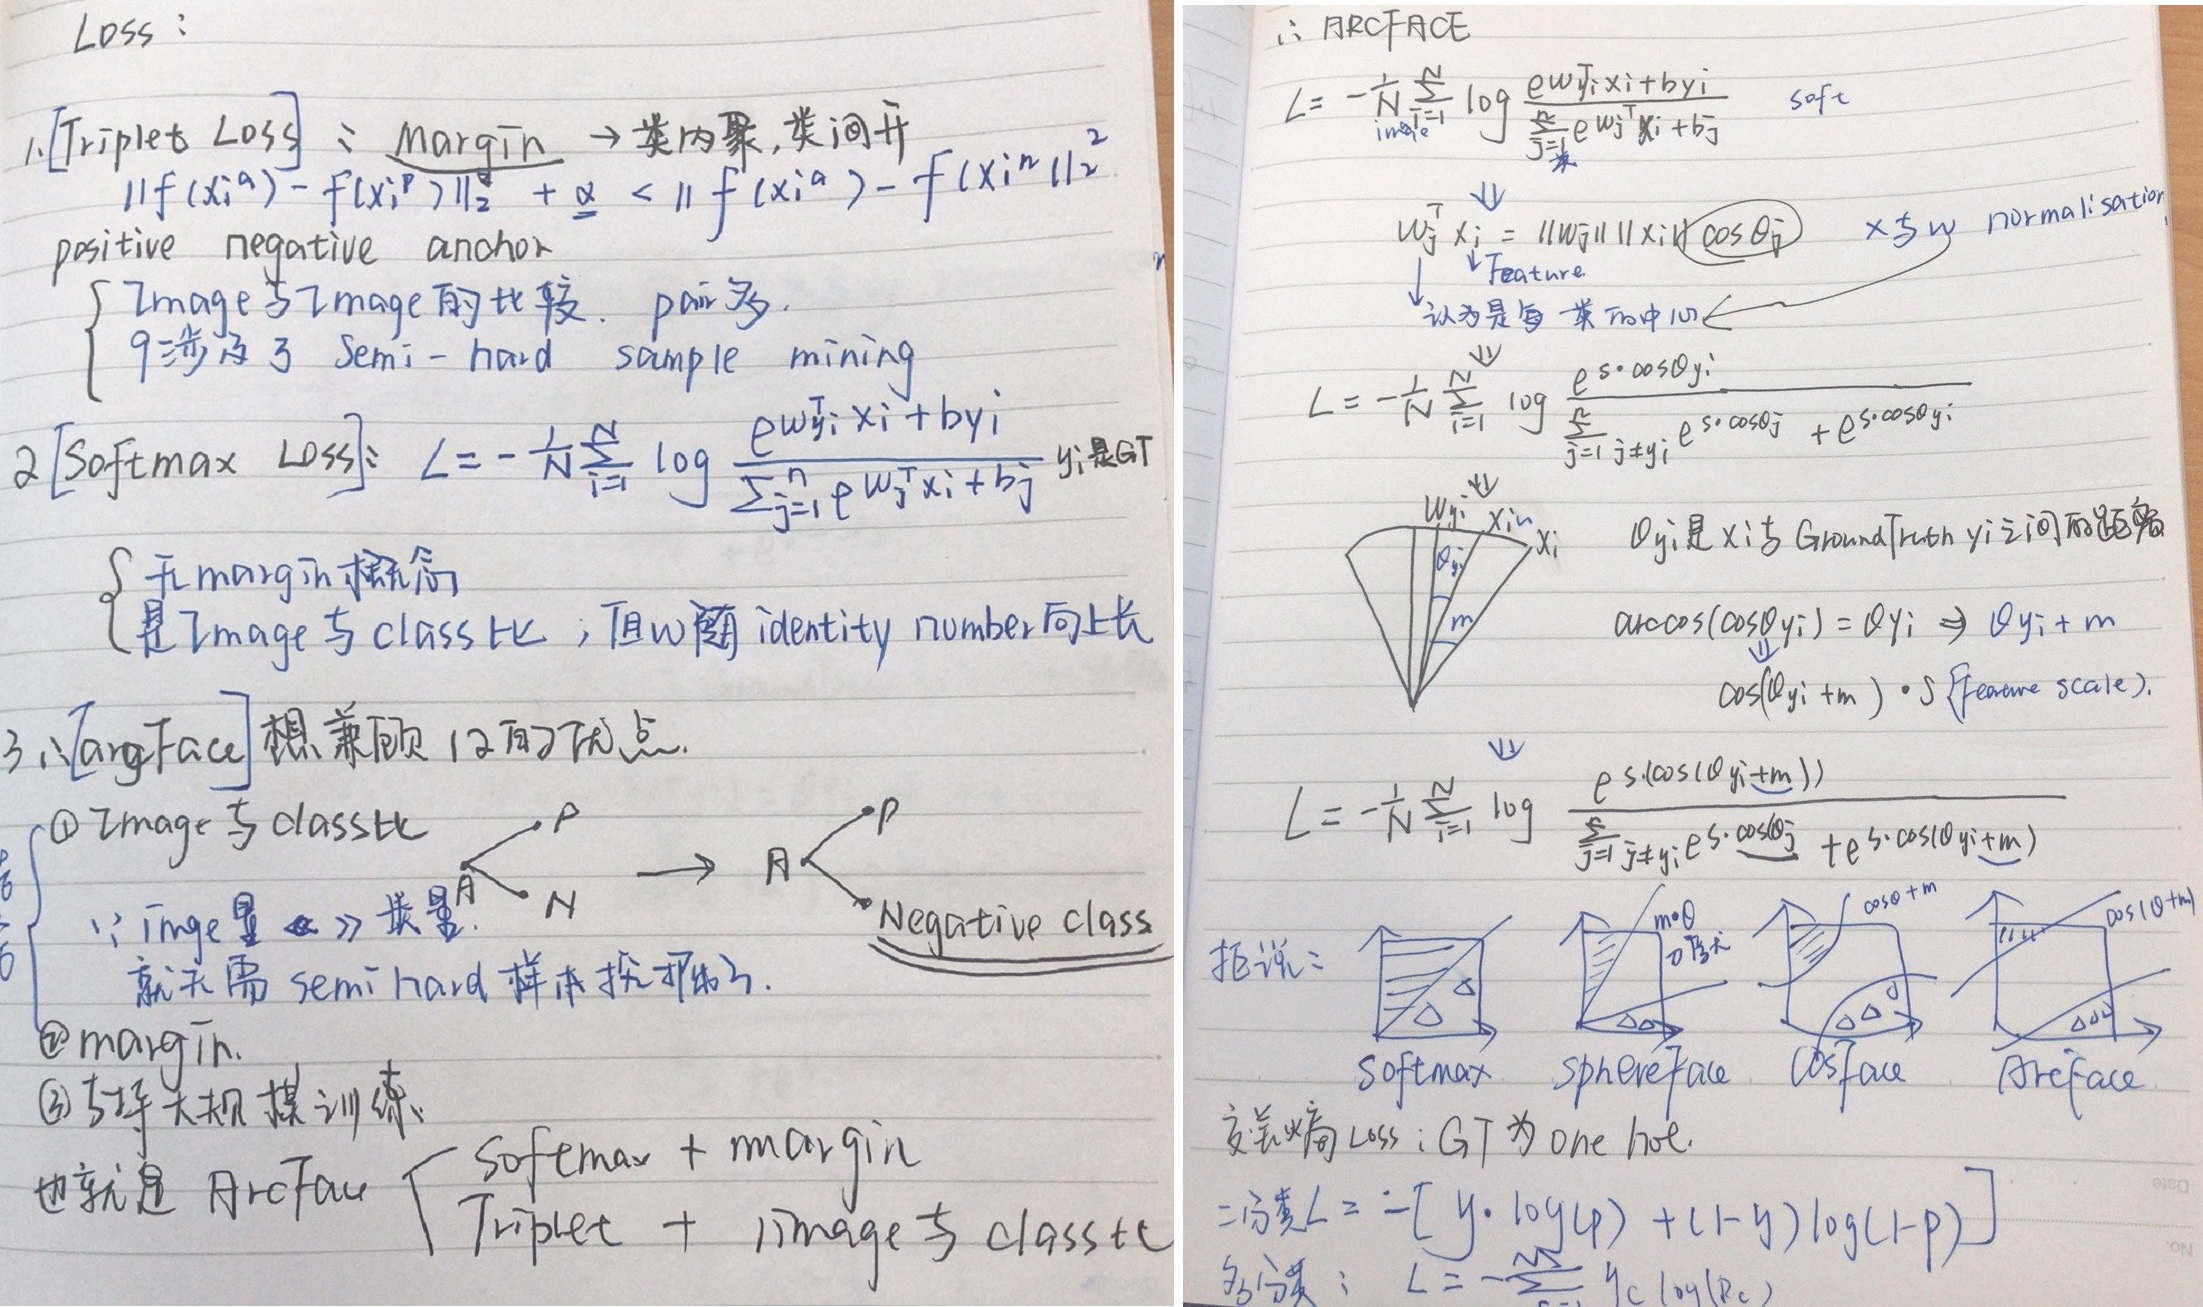 Loss:
1. [Triplet Loss]: margin → 类内聚,类间开
||f(xi^a) - f(xi^p)||₂² + α < ||f(xi^a) - f(xi^n||₂²
positive negative anchor
Image与Image的比较. pair多.
牵涉及了 Semi-hard sample mining
2 [Softmax Loss]: L = -1/N Σ_{i=1}^{N} log e^{W_{yi}^T xi + b_{yi}} / Σ_{j=1}^{n} e^{W_j^T xi + b_j} yi是GT
无margin概念
是Image与class比, 但W随identity number向上长
3. ∴[argFace]想兼顾12的优点.
① Image与class比
A P N → A P Negative class
∵ imge量 >> 类量.
就无需semi hard样本挖掘了.
② margin.
③ 支持大规模训练.
也就是 ArcFace
softmax + margin
Triplet + image与class比
∴ ARCFACE
L = -1/N Σ_{i=1}^{N} log e^{W_{yi}^T xi + b_{yi}} / Σ_{j=1}^{n} e^{W_j^T xi + b_j} soft
image 类
⇓
W_j^T xi = ||Wj|| ||xi|| cosθj x与w normalisation
↓ ↓ Feature
认为是每类的中心
⇓
L = -1/N Σ_{i=1}^{N} log e^{s·cosθyi} / Σ_{j=1 j≠yi}^{n} e^{s·cosθj} + e^{s·cosθyi}
⇓
Wyi xi xi
θyi m
θyi是xi与Ground Truth yi之间的距离
arccos(cosθyi) = θyi ⇒ θyi + m
⇓
cos(θyi + m) · S (feature scale).
⇓
L = -1/N Σ_{i=1}^{N} log e^{s·(cos(θyi+m))} / Σ_{j=1 j≠yi}^{n} e^{s·cosθj} + e^{s·cos(θyi+m)}
m·θ cosθ+m cos(θ+m)
据说:
Softmax SphereFace Cosface Arcface
交叉熵Loss: GT为one hot.
二分类L = -[y·log(p) + (1-y)log(1-p)]
多分类: L = -Σ yc log(Pc)